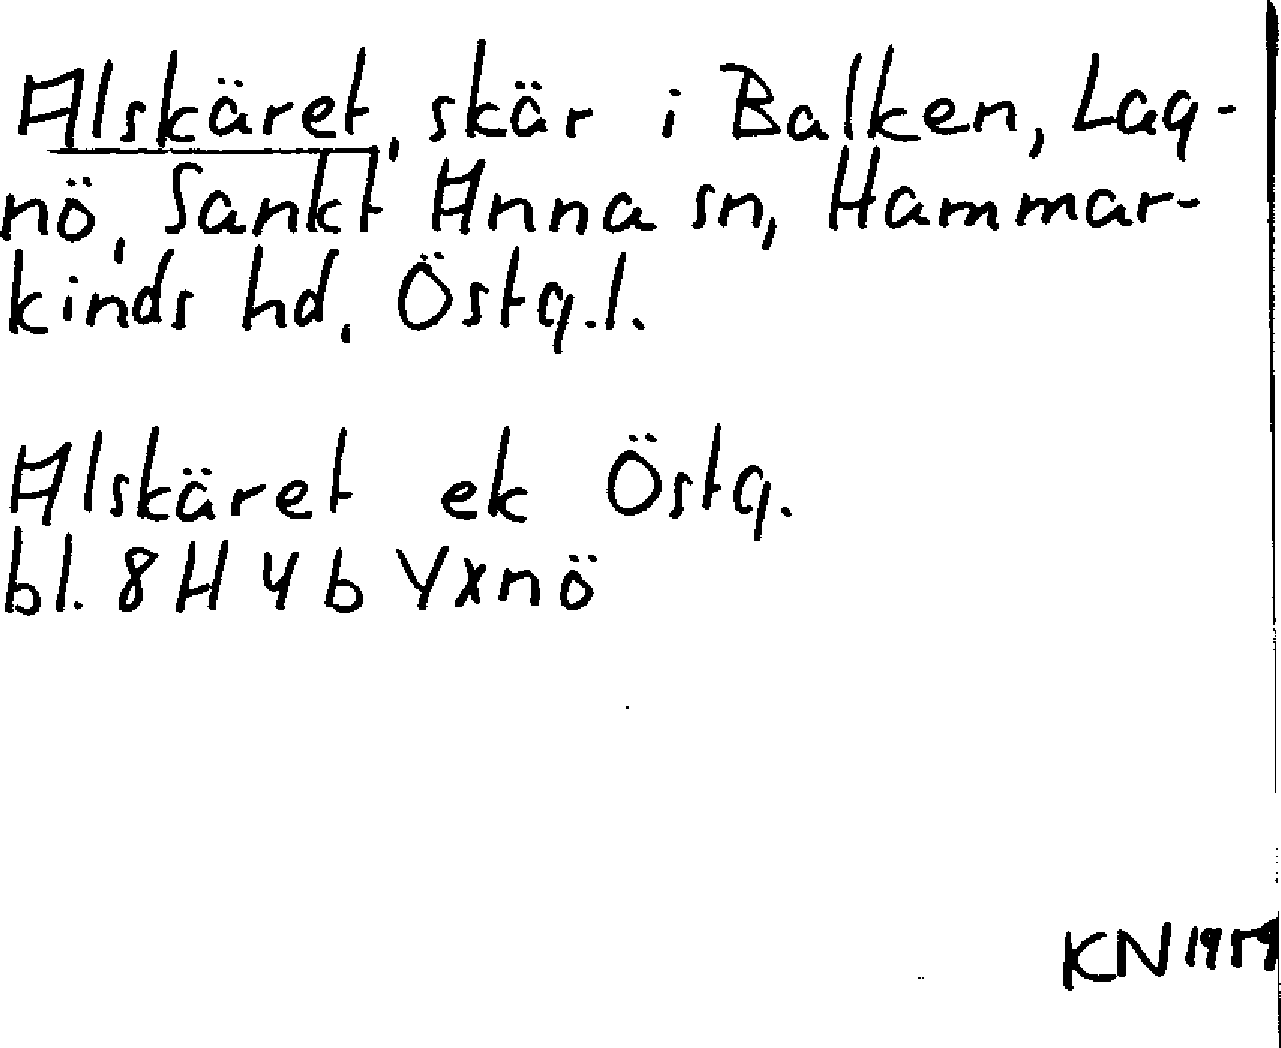 Alskäret, skär i Balken, Lag-
nö, Sankt Anna sn, Hammar-
kinds hd, Östg.l.
Alskäret ek Östg.
bl. 8H 4b Yxnö
KN 1959